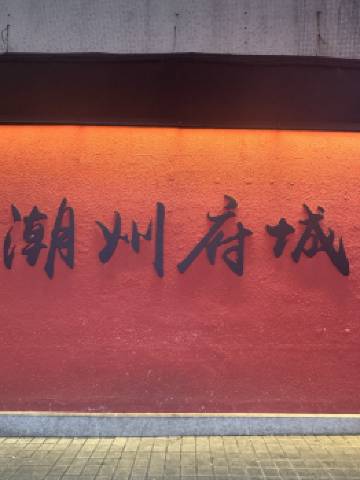 潮州府城